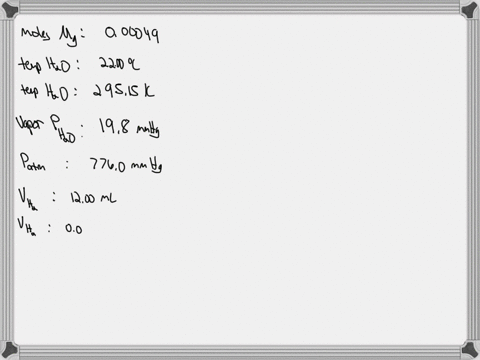 moles Mg: 0.00049
temp H₂O: 22.00 °C
temp H₂O: 295.15 K
Vapor P H₂O: 19.8 mmHg
Patm : 776.0 mmHg
V H₂ : 12.00 mL
V H₂ : 0.0